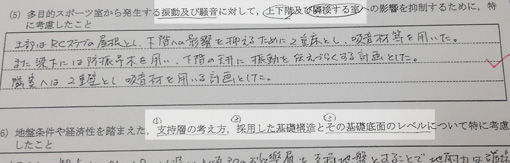 (5) 多目的スポーツ室から発生する振動及び騒音に対して，上下階及び隣接する室への影響を抑制するために，特
に考慮したこと
上部はRCスラブの屋根とし、下階への影響を抑えるために2重床とし、吸音材等を用いた。
また梁下には防振ゴムを用い、下階の天井に振動を伝えづらくする計画とした。
隣室へは2重壁とし吸音材を用いる計画とした。
① ② ③
(6) 地盤条件や経済性を踏まえた，支持層の考え方，採用した基礎構造とその基礎底面のレベルについて特に考慮
したこと